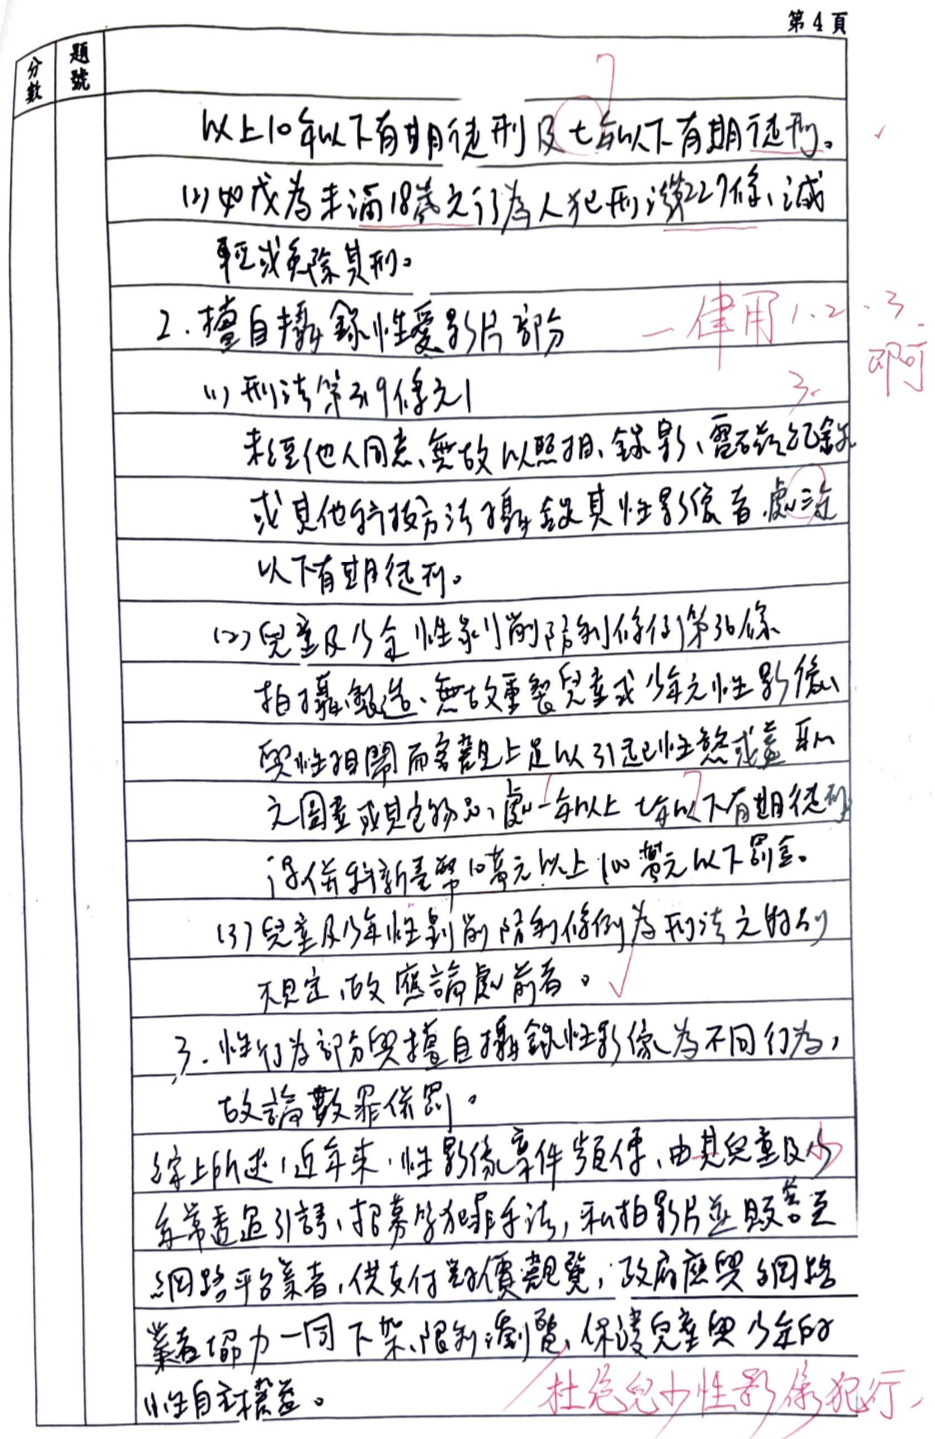 第4頁
分數
題號
7
以上10年以下有期徒刑及七年以下有期徒刑。
(2)如戊為未滿18歲之行為人犯刑法第227條,減
輕或免除其刑。
2.擅自攝錄性愛影片部分
一律用1.2.3.
即可
(1)刑法第319條之1
3.
未經他人同意、無故以照相、錄影、電磁紀錄
或其他科技方法攝錄其性影像者,處三年
以下有期徒刑。
(2)兒童及少年性剝削防制條例第36條
拍攝、製造、無故重製兒童或少年之性影像、
與性相關而客觀上足以引起性慾或羞恥
之圖畫或其它物品,處一年以上七年以下有期徒刑
1
7
得併科新臺幣10萬元以上100萬元以下罰金。
(3)兒童及少年性剝削防制條例為刑法之特別
規定,故應論處前者。
3.性行為部分與擅自攝錄性影像為不同行為,
故論數罪併罰。
綜上所述,近年來,性影像案件頻傳、尤其兒童及少
年常遭逼引誘,招募等犯罪手法,私拍影片並販售至
網路平台業者,供支付對價觀覽,政府應與網路
業者協力一同下架、限制瀏覽、保護兒童與少年的
性自主權益。
杜絕兒少性影像犯行,